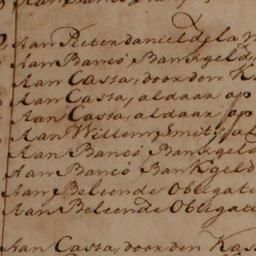 Aan Banco
Aan Pieter daniel de la
Aan Banco Bankgeld,
Aan Cassa, door den
Aan Cassa, aldaar op
Aan Cassa, aldaar op
Aan Willem Smit
Aan Banco Bankgeld
Aan Banco Bankgeld
Aan Beleende Obligat
Aan Beleende Obligat
Aan Cassa, door den Kas